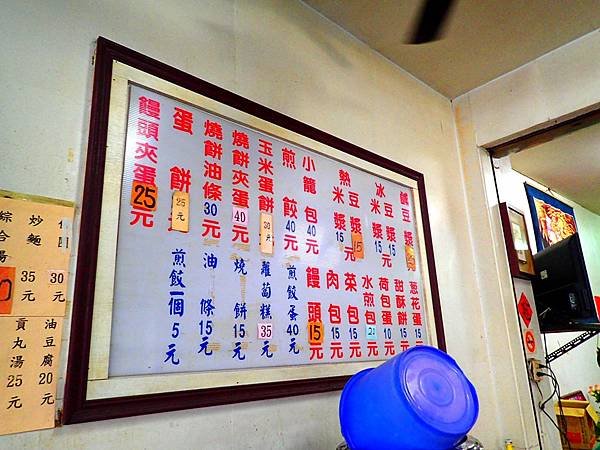 鹹豆漿
冰豆漿15
冰米漿15
熱豆漿15
熱米漿15
小龍包40元
煎餃40元
玉米蛋餅30元
燒餅夾蛋40元
燒餅油條30元
蛋餅25元
饅頭夾蛋25元
蔥花蛋15元
甜酥餅15元
荷包蛋10元
水煎包
茶包15元
肉包15元
饅頭15元
煎餃蛋40元
蘿蔔糕35元
燒餅15元
油條15元
煎餃一個5元
30元
炒麵35元
綜合湯
油豆腐20元
貢丸湯25元